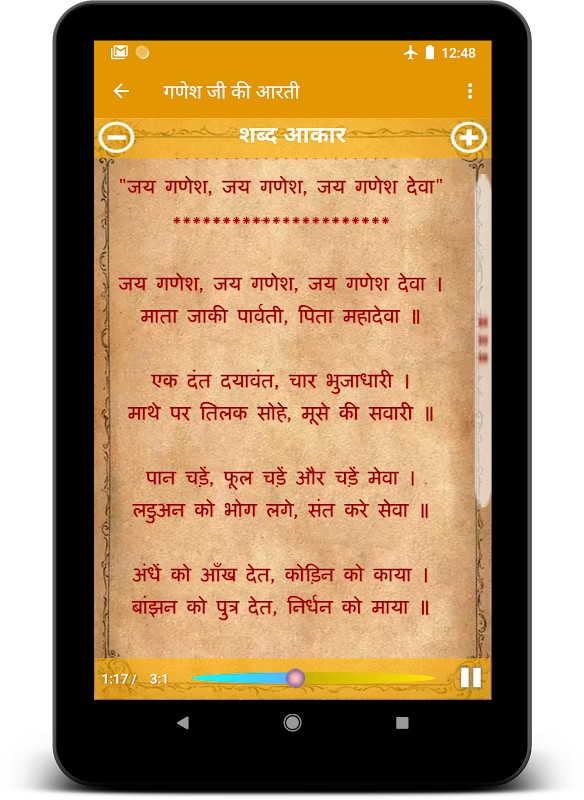 12:48
गणेश जी की आरती
शब्द आकार
"जय गणेश, जय गणेश, जय गणेश देवा"
**********************
जय गणेश, जय गणेश, जय गणेश देवा ।
माता जाकी पार्वती, पिता महादेवा ॥
एक दंत दयावंत, चार भुजाधारी ।
माथे पर तिलक सोहे, मूसे की सवारी ॥
पान चड़ें, फूल चड़ें और चड़ें मेवा ।
लडुअन को भोग लगे, संत करे सेवा ॥
अंधें को आँख देत, कोड़िन को काया ।
बांझन को पुत्र देत, निर्धन को माया ॥
1:17 / 3:1